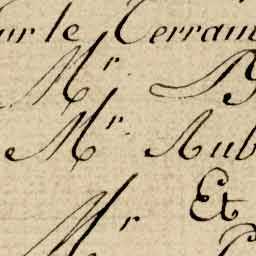 ur le Terrain
Mr.
Mr. Aub
Et
Mr